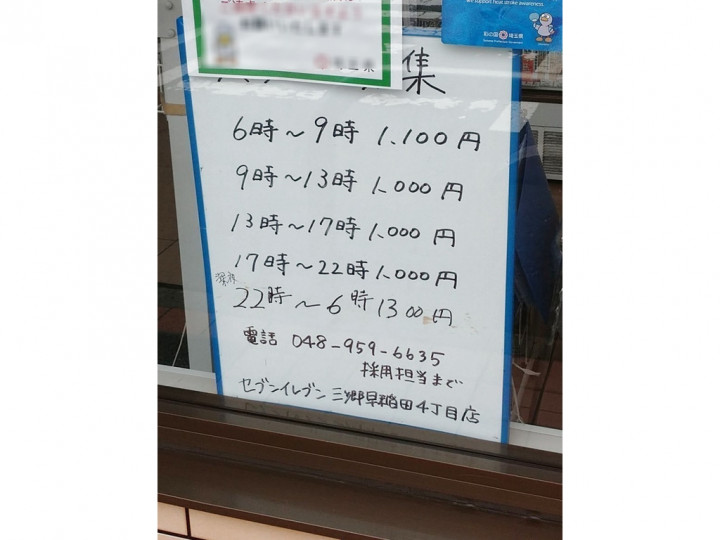 彩の国 埼玉県
集
6時～9時 1.100円
9時～13時 1.000円
13時～17時 1.000円
17時～22時 1.000円
22時～6時 1300円
電話 048-959-6635
採用担当まで
セブンイレブン 三郷早稲田4丁目店